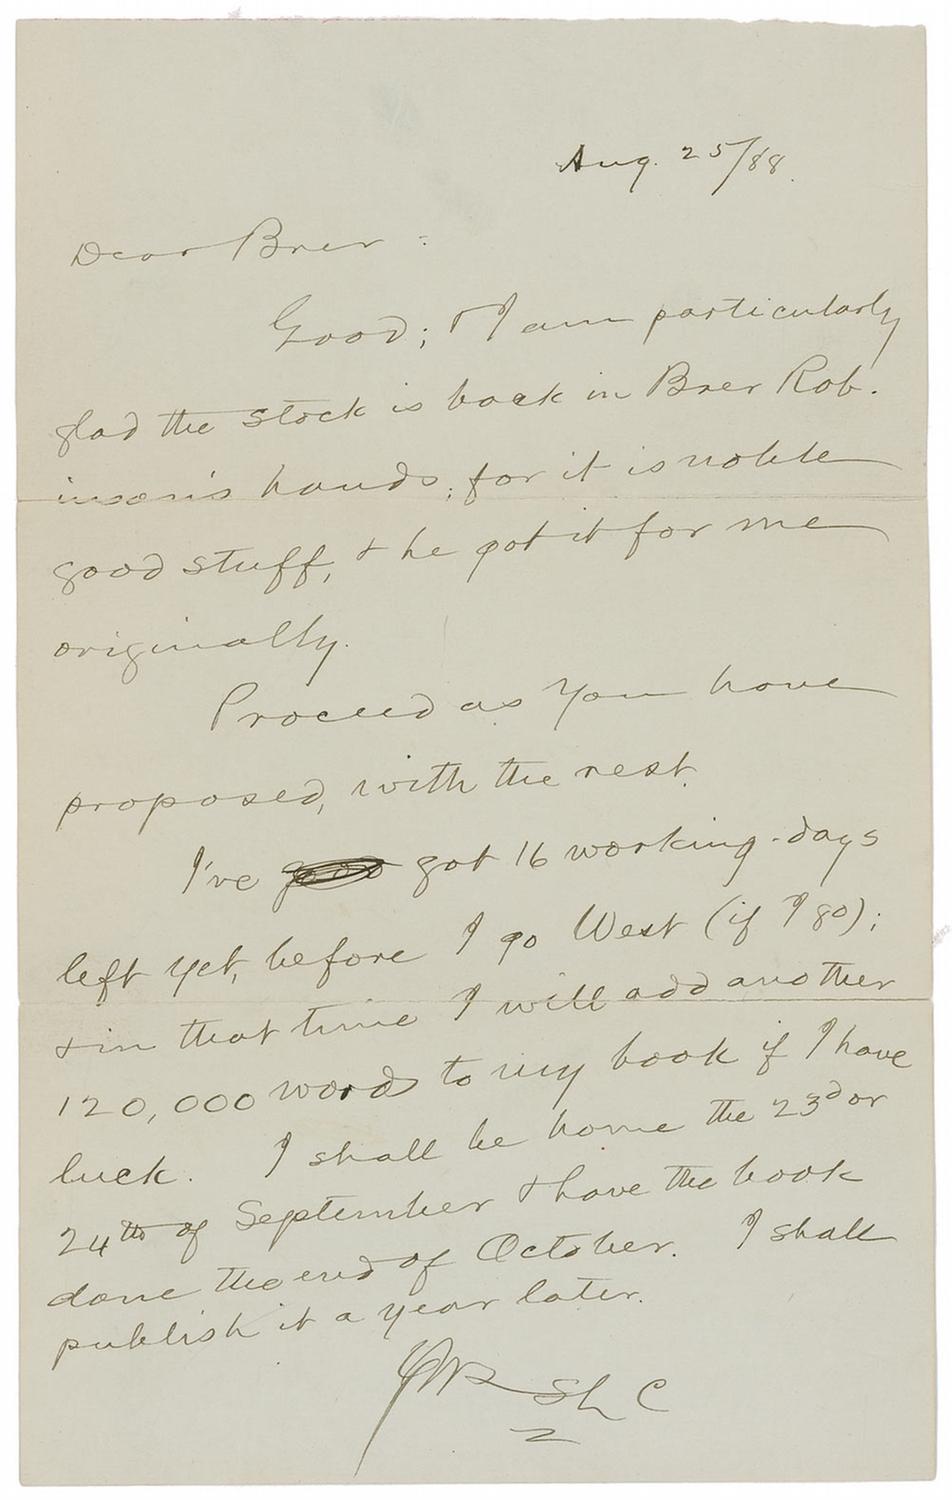 Aug. 25/88.
Dear Brer:
Good; & I am particularly
glad the stock is back in Brer Rob-
inson's hands, for it is noble
good stuff, & he got it for me
originally.
Proceed as you have
proposed, with the rest.
I've got 16 working-days
left yet, before I go West (if I go);
& in that time I will add another
120,000 words to my book if I have
luck. I shall be home the 23d or
24th of September & have the book
done the end of October. I shall
publish it a year later.
Yrs SLC